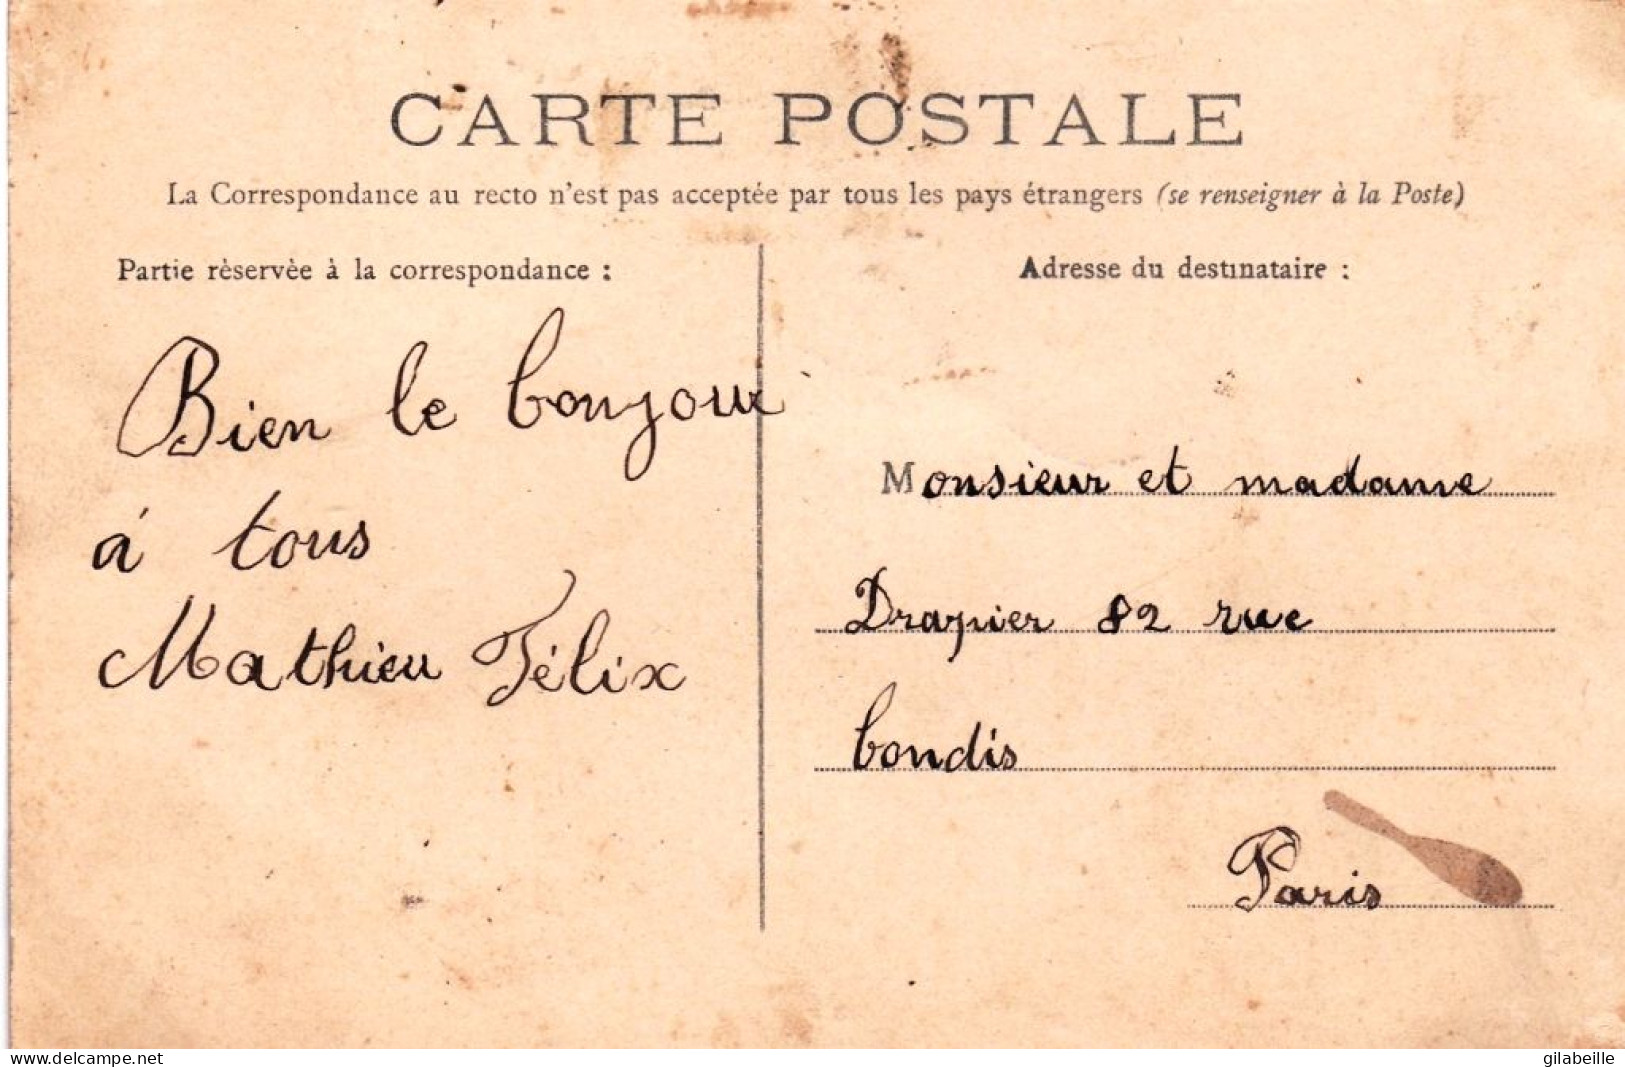 CARTE POSTALE
La Correspondance au recto n'est pas acceptée par tous les pays étrangers (se renseigner à la Poste)
Partie rèservèe à la correspondance :
Bien le bonjour
á tous
Mathieu Félix
Adresse du destinataire :
Monsieur et madame
Drapier 82 rue
bondis
Paris
www.delcampe.net
gilabeille